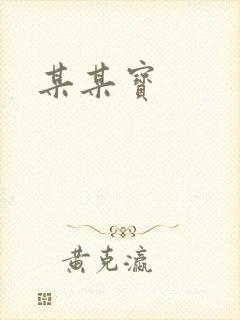 某某寶
黃克瀛